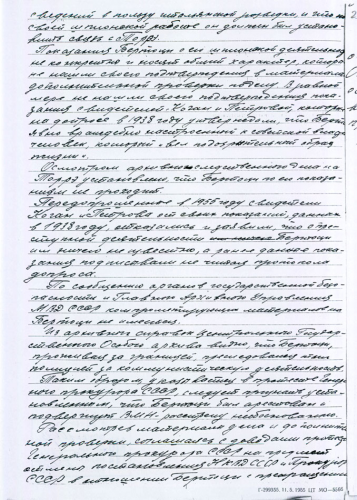 сведений в пользу итальянской разведки и что по
своей шпионской работе он должен был устано-
вить связь с
Показания Бертоци о его шпионской деятельности
не конкретны и носят общий характер, которые
не нашли своего подтверждения в материалах
дополнительной проверки по делу. В равной
мере не нашли своего подтверждения пока-
зания свидетелей Коган и Петровой, которые
на допросе в 1938 году утверждали, что Берто-
враждебно настроенный к советской власти
человек, который вел подозрительный образ
жизни.
Осмотром архивно-следственного дела на
установлено, что Бертоци по его показа-
ниям не проходит.
Передопрошенные в 1955 году свидетели
Коган и Петрова от своих показаний, данных
в 1938 году, отказались и заявили, что о прес-
тупной деятельности Бертоци
им ничего не известно, а ранее данные пока-
зания подписывали не читая протокола
допроса.
По сообщению органов государственной безо-
пасности и Главного архивного Управления
МВД СССР компрометирующих материалов на
Бертоци не имеется.
Из архивных справок Центрального Государ-
ственного Особого архива видно, что Бертоци,
проживая за границей, преследовался
полицией за коммунистическую деятельность.
Таким образом, указывается в протесте Генераль-
ного прокурора СССР, следует признать уста-
новленным, что Бертоци был арестован и
подвергнут ВМН расстрелу необоснованно.
Рассмотрев материалы дела и дополнитель-
ной проверки, соглашаясь с доводами протеста
Генерального прокурора СССР на предмет
отмены постановления НКВД СССР и Прокурора
СССР в отношении Бертоци и прекращения
Г-299055, 11.5.1955 ЦТ МО-5586